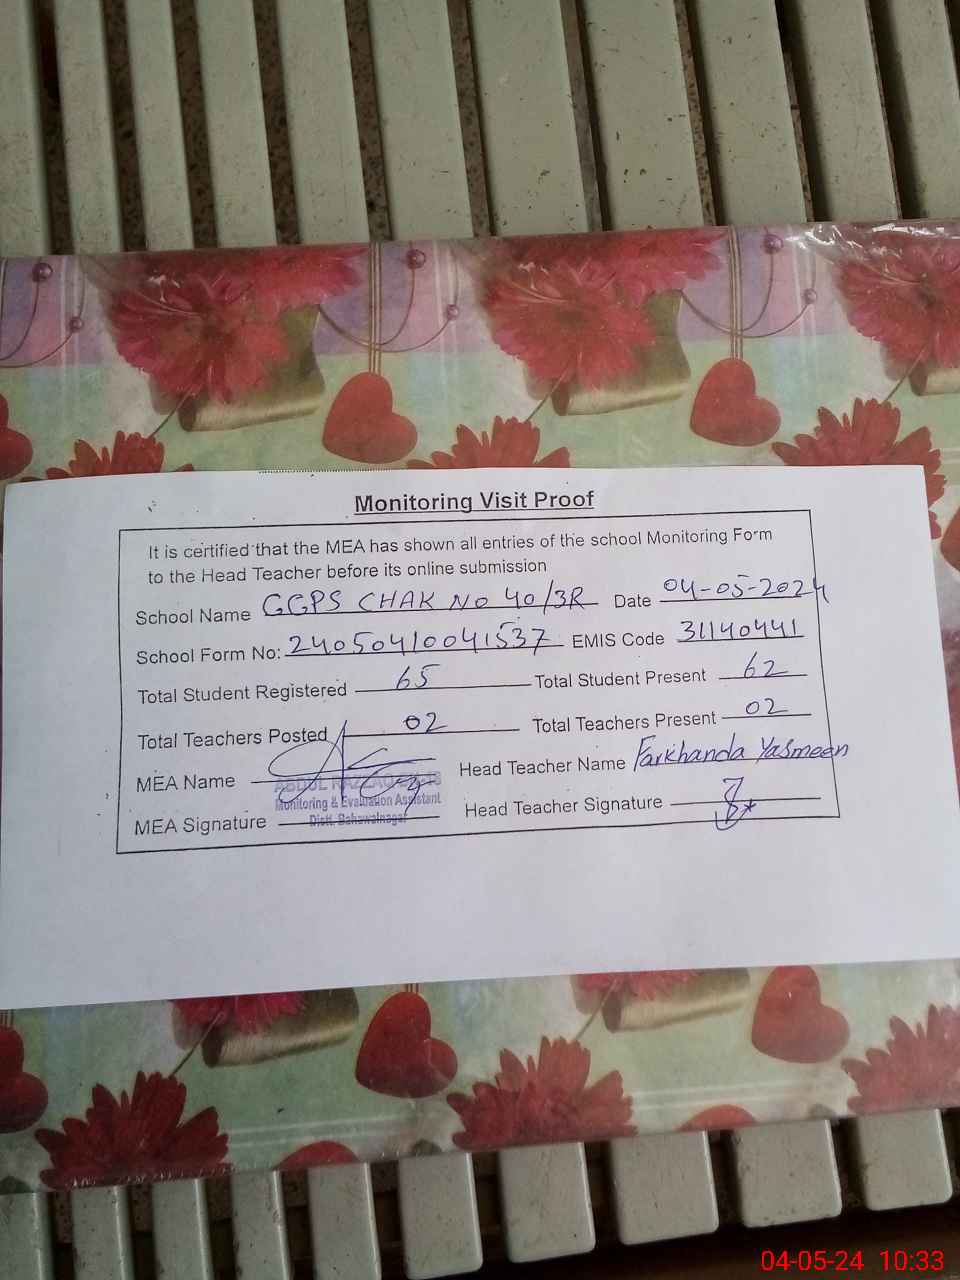 Monitoring Visit Proof
It is certified that the MEA has shown all entries of the school Monitoring Form
to the Head Teacher before its online submission
School Name GGPS CHAK No 40/3R Date 04-05-2024
School Form No: 24050410041537 EMIS Code 31140441
Total Student Registered 65 Total Student Present 62
Total Teachers Posted 02 Total Teachers Present 02
MEA Name Head Teacher Name Farkhanda Yasmeen
ABDUL RAZZAQ
Monitoring & Evaluation Assistant
Distt. Bahawalnagar
MEA Signature Head Teacher Signature
04-05-24 10:33